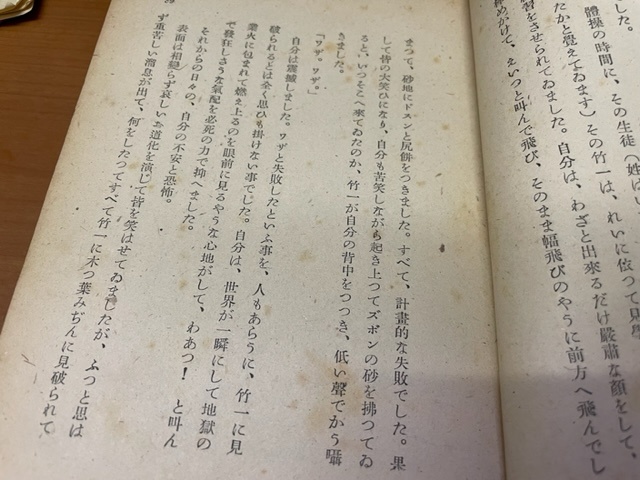 した。
體操の時間に、その生徒(姓はい
たかと覺えてゐます)その竹一は、れいに依つて見學
習をさせられてゐました。自分は、わざと出來るだけ嚴肅な顏をして、
めがけて、えいつと叫んで飛び、そのまま幅飛びのやうに前方へ飛んでし
まつて、砂地にドスンと尻餅をつきました。すべて、計畫的な失敗でした。果
して皆の大笑ひになり、自分も苦笑しながら起き上つてズボンの砂を拂つてゐ
ると、いつそこへ來てゐたのか、竹一が自分の背中をつつき、低い聲でかう囁
きました。
「ワザ。ワザ。」
自分は震撼しました。ワザと失敗したといふ事を、人もあらうに、竹一に見
破られるとは全く思ひも掛けない事でした。自分は、世界が一瞬にして地獄の
業火に包まれて燃え上るのを眼前に見るやうな心地がして、わあつ! と叫ん
で發狂しさうな氣配を必死の力で抑へました。
それからの日々の、自分の不安と恐怖。
表面は相變らず哀しいお道化を演じて皆を笑はせてゐましたが、ふつと思は
ず重苦しい溜息が出て、何をしたつてすべて竹一に木つ葉みぢんに見破られて